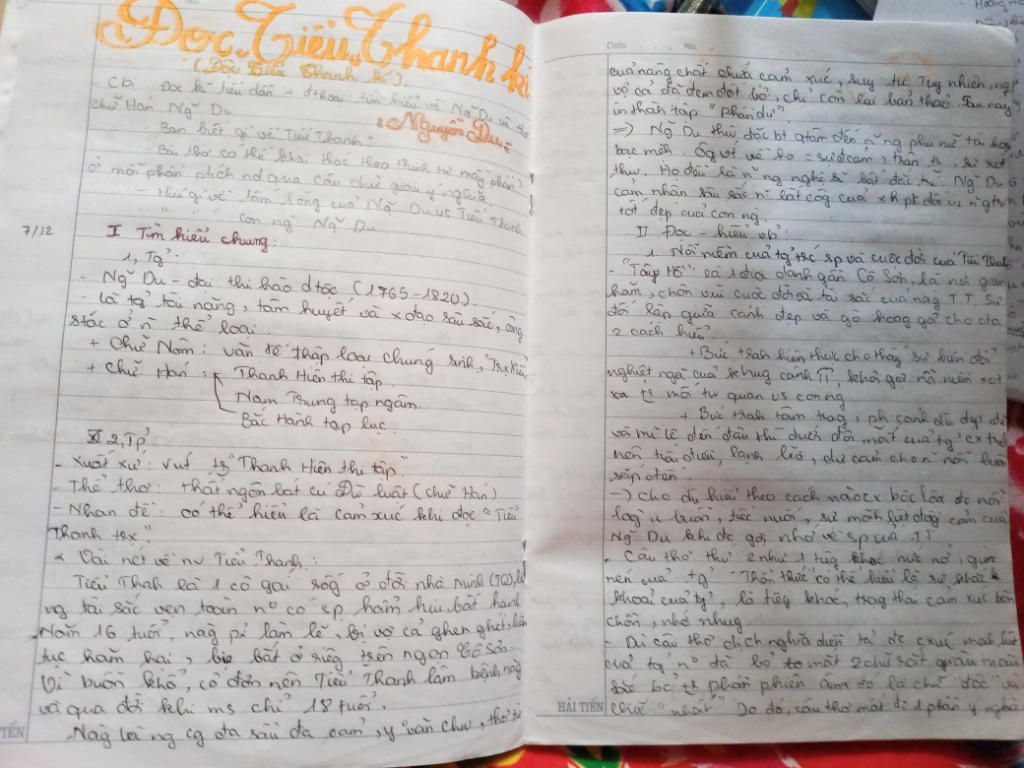 No.
Đọc Tiểu Thanh kí
(Độc Tiểu Thanh kí)
CB: Đọc kĩ tiểu dẫn → tìm hiểu về Ng~ Du và thơ
chữ Hán Ng~ Du
Nguyễn Du
- Bạn biết gì về Tiểu Thanh
- Bài thơ có thể khai thác theo trình tự mấy phần?
ở mỗi phần ptích nd qua câu chữ quan ý nghĩa
- Hiểu gì về tấm lòng của Ng~ Du vs Tiểu Thanh
con ng Ng~ Du
7/12
I Tìm hiểu chung:
1, Tg²:
- Ng~ Du - đại thi hào dtộc (1765-1820)
- là tg² tài năng, tâm huyết và x đạo sâu sắc, sáng
tác ở n thể loại.
+ Chữ Nôm: văn tế thập loại chúng sinh, Trx Kiều
+ Chữ Hán: Thanh Hiên thi tập
Nam Trung tạp ngâm
Bắc Hành tạp lục
2, Tp²:
- Xuất xứ: "Thanh Hiên thi tập"
- Thể thơ: thất ngôn bát cú Đ luật (chữ Hán)
- Nhan đề: có thể hiểu là cảm xúc khi đọc "Tiểu
Thanh trx"
* Vài nét về nv Tiểu Thanh:
Tiểu Thah là 1 cô gái sốg ở đời nhà Minh (TQ), là
ng tài sắc vẹn toàn nº có sp hẩm hiu, bất hạnh
Năm 16 tuổi, nàg pi làm lẽ, bị vợ cả ghen ghét, liên
tục hãm hại, bắt ở riêg trên ngọn Cô Sơn.
Vì buồn khổ, cô đơn nên Tiểu Thanh lâm bệnh nặg
và qua đời khi ms chỉ 18 tuổi.
Nàg là ng cg đa sầu đa cảm, văn chư, thơ từ
TIẾN
Date No.
của nàng chất chứa cảm xúc, suy tư. Tuy nhiên, ng
vợ cả đã đem đốt bỏ, chỉ còn lại bản thảo. Sau này
in thành tập "phần dư"
=) Ng~ Du thư đặc bt qtâm đến n~ng phụ nữ tài hoa
bạc mệnh. Ôg vt về họ = sự đcảm, trân tr, sự xót
thư. Họ đều là n~ng nghệ sĩ Ng~ Du
cảm nhận sâu sắc n~ bất côg của xh pk đối vs n~ng
tốt đẹp của con ng.
II Đọc - hiểu vb:
1. Nỗi niềm của tg² trc sp và cuộc đời của Tiểu Thah
- "Tây Hồ" là 1 địa danh gần Cô Sơn, là nơi giam
hãm, chôn vùi cuộc đời và tài sắc của nàg T.T. Sự
đối lập giữa cảnh đẹp và gò hoag gợi cho cta
2 cách hiểu:
+ Bức trah hiện thực cho thấy sự biến đổi
nghiệt ngã của khug cảnh TN, khơi gợi nỗi niềm xót
xa mối tư quan vs con ng
+ Bức trah tâm trạg, ph cảnh dù đẹp đẽ
và mĩ lệ đến đâu thì dưới đôi mắt của tg² cx trở
nên trái dưới, lạnh lẽo, dự cảm cho n~ nỗi buồn
sắp đến.
-) Cho dù hiểu theo cách nào cx bộc lộ đc nỗi
lòg u buồn, tiếc nuối, sự mãh liệt đồg cảm của
Ng~ Du khi đc gợi nhớ về sp của TT.
- Câu thơ thứ 2 như 1 tiếg khóc nức nở,
nén của tg². "Thổn thức" có thể hiểu là sự khắc
khoải của tg², là tiếg khóc, trạg thái cảm xúc bồn
chồn, nhớ nhug.
- Dù câu thơ dịch nghĩa diễn tả đc cxúc mãh liệt
của tg² nº đã bỏ mất 2 chữ rất quan
sắc bởi phần phiên âm đó là chữ "độc" và
chữ "nhất". Do đó, câu thơ mất đi 1 phần ý nghĩa
HẢI TIẾN